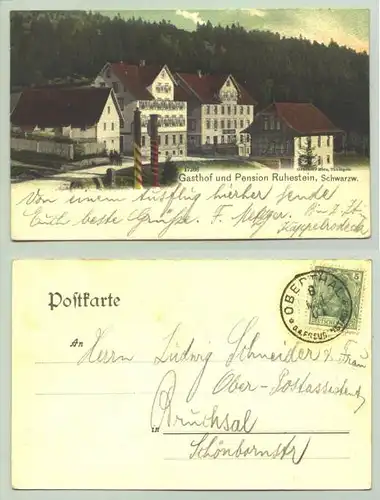 17200
Gasthof und Pension Ruhestein, Schwarzw.
Von einem Ausflug hierher sende
Euch beste Grüße. F. Metzger.
Kappelrodeck
Postkarte
OBERTHAL
5
An
Herrn Ludwig Schneider & Frau
Ober-Postassistent
IN Bruchsal
Schönbornstr